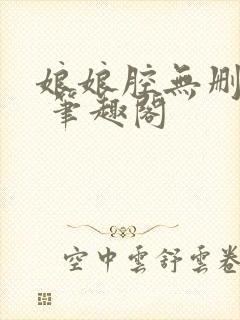 娘娘腔無删
筆趣閣
空中雲舒雲卷